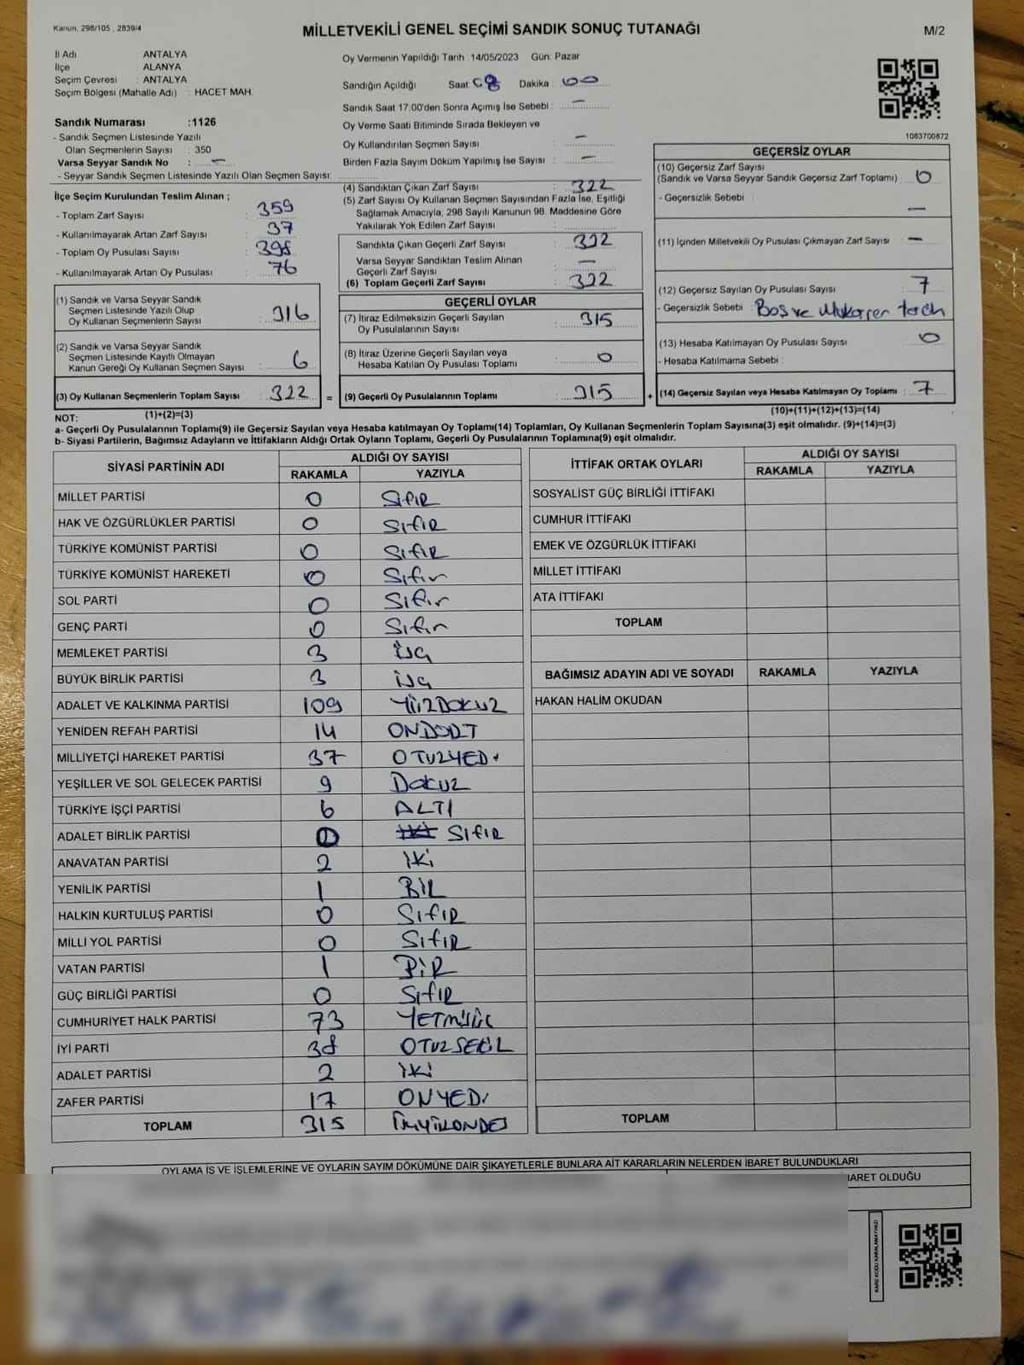 Kanun, 298/105 , 2839/4
MİLLETVEKİLİ GENEL SEÇİMİ SANDIK SONUÇ TUTANAĞI
M/2
İl Adı ANTALYA
İlçe ALANYA
Seçim Çevresi : ANTALYA
Seçim Bölgesi (Mahalle Adı) : HACET MAH.
Sandık Numarası :1126
- Sandık Seçmen Listesinde Yazılı
Olan Seçmenlerin Sayısı : 350
Varsa Seyyar Sandık No : —
- Seyyar Sandık Seçmen Listesinde Yazılı Olan Seçmen Sayısı:
Oy Vermenin Yapıldığı Tarih 14/05/2023 Gün: Pazar
Sandığın Açıldığı Saat: 08 Dakika : 00
Sandık Saat 17.00'den Sonra Açımış İse Sebebi : —
Oy Verme Saati Bitiminde Sırada Bekleyen ve
Oy Kullandırılan Seçmen Sayısı : —
Birden Fazla Sayım Döküm Yapılmış İse Sayısı : —
1083700872
İlçe Seçim Kurulundan Teslim Alınan ;
- Toplam Zarf Sayısı : 359
- Kullanılmayarak Artan Zarf Sayısı : 37
- Toplam Oy Pusulası Sayısı : 398
- Kullanılmayarak Artan Oy Pusulası : 76
(1) Sandık ve Varsa Seyyar Sandık
Seçmen Listesinde Yazılı Olup
Oy Kullanan Seçmenlerin Sayısı : 316
(2) Sandık ve Varsa Seyyar Sandık
Seçmen Listesinde Kayıtlı Olmayan
Kanun Gereği Oy Kullanan Seçmen Sayısı : 6
(3) Oy Kullanan Seçmenlerin Toplam Sayısı : 322 =
(4) Sandıktan Çıkan Zarf Sayısı : 322
(5) Zarf Sayısı Oy Kullanan Seçmen Sayısından Fazla İse, Eşitliği
Sağlamak Amacıyla, 298 Sayılı Kanunun 98. Maddesine Göre
Yakılarak Yok Edilen Zarf Sayısı :
Sandıkta Çıkan Geçerli Zarf Sayısı : 322
Varsa Seyyar Sandıktan Teslim Alınan
Geçerli Zarf Sayısı : —
(6) Toplam Geçerli Zarf Sayısı : 322
GEÇERLİ OYLAR
(7) İtiraz Edilmeksizin Geçerli Sayılan
Oy Pusulalarının Sayısı : 315
(8) İtiraz Üzerine Geçerli Sayılan veya
Hesaba Katılan Oy Pusulası Toplamı : 0
(9) Geçerli Oy Pusulalarının Toplamı : 315 +
GEÇERSİZ OYLAR
(10) Geçersiz Zarf Sayısı
(Sandık ve Varsa Seyyar Sandık Geçersiz Zarf Toplamı) : 0
- Geçersizlik Sebebi : —
(11) İçinden Milletvekili Oy Pusulası Çıkmayan Zarf Sayısı : —
(12) Geçersiz Sayılan Oy Pusulası Sayısı : 7
- Geçersizlik Sebebi : Boş ve Mükerrer
(13) Hesaba Katılmayan Oy Pusulası Sayısı : 0
- Hesaba Katılmama Sebebi :
(14) Geçersiz Sayılan veya Hesaba Katılmayan Oy Toplamı : 7
NOT: (1)+(2)=(3)
(10)+(11)+(12)+(13)=(14)
a- Geçerli Oy Pusulalarının Toplamı(9) ile Geçersiz Sayılan veya Hesaba katılmayan Oy Toplamı(14) Toplamları, Oy Kullanan Seçmenlerin Toplam Sayısına(3) eşit olmalıdır. (9)+(14)=(3)
b- Siyasi Partilerin, Bağımsız Adayların ve İttifakların Aldığı Ortak Oyların Toplamı, Geçerli Oy Pusulalarının Toplamına(9) eşit olmalıdır.
SİYASİ PARTİNİN ADI ALDIĞI OY SAYISI
RAKAMLA YAZIYLA
MİLLET PARTİSİ 0 Sıfır
HAK VE ÖZGÜRLÜKLER PARTİSİ 0 Sıfır
TÜRKİYE KOMÜNİST PARTİSİ 0 Sıfır
TÜRKİYE KOMÜNİST HAREKETİ 0 Sıfır
SOL PARTİ 0 Sıfır
GENÇ PARTİ 0 Sıfır
MEMLEKET PARTİSİ 3 üç
BÜYÜK BİRLİK PARTİSİ 3 üç
ADALET VE KALKINMA PARTİSİ 109 YÜZDOKUZ
YENİDEN REFAH PARTİSİ 14 ONDÖRT
MİLLİYETÇİ HAREKET PARTİSİ 37 OTUZYEDİ
YEŞİLLER VE SOL GELECEK PARTİSİ 9 Dokuz
TÜRKİYE İŞÇİ PARTİSİ 6 ALTI
ADALET BİRLİK PARTİSİ 0 Sıfır
ANAVATAN PARTİSİ 2 iKi
YENİLİK PARTİSİ 1 BİR
HALKIN KURTULUŞ PARTİSİ 0 Sıfır
MİLLİ YOL PARTİSİ 0 Sıfır
VATAN PARTİSİ 1 BİR
GÜÇ BİRLİĞİ PARTİSİ 0 Sıfır
CUMHURİYET HALK PARTİSİ 73 YETMİŞÜÇ
İYİ PARTİ 38 OTUZSEKİZ
ADALET PARTİSİ 2 iKi
ZAFER PARTİSİ 17 ONYEDİ
TOPLAM 315
İTTİFAK ORTAK OYLARI ALDIĞI OY SAYISI
RAKAMLA YAZIYLA
SOSYALİST GÜÇ BİRLİĞİ İTTİFAKI
CUMHUR İTTİFAKI
EMEK VE ÖZGÜRLÜK İTTİFAKI
MİLLET İTTİFAKI
ATA İTTİFAKI
TOPLAM
BAĞIMSIZ ADAYIN ADI VE SOYADI RAKAMLA YAZIYLA
HAKAN HALİM OKUDAN
TOPLAM
OYLAMA İŞ VE İŞLEMLERİNE VE OYLARIN SAYIM DÖKÜMÜNE DAİR ŞİKAYETLERLE BUNLARA AİT KARARLARIN NELERDEN İBARET BULUNDUKLARI
BARET OLDUĞU